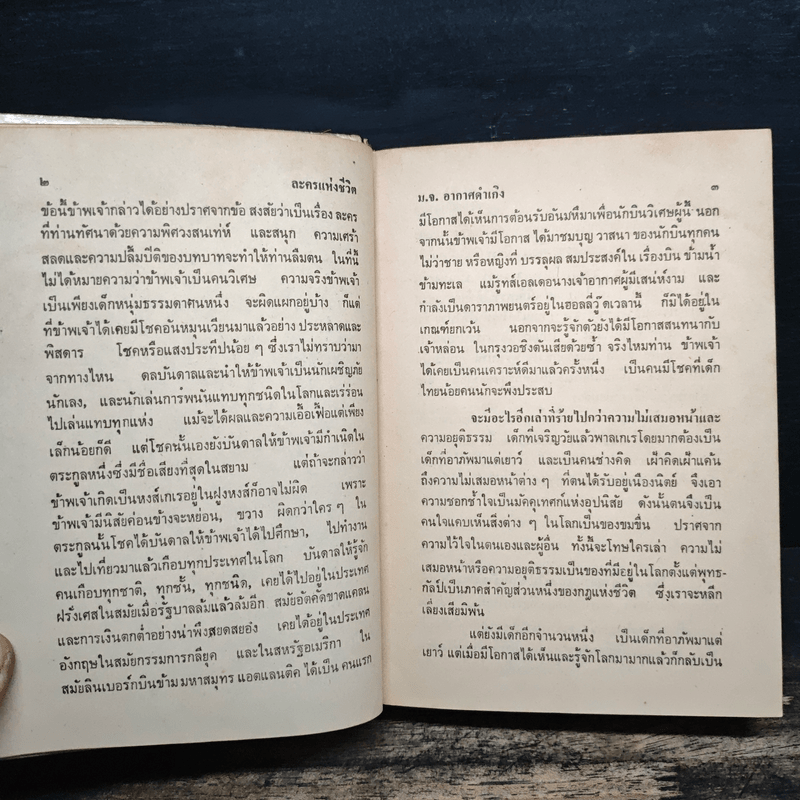 ๒ ละครแห่งชีวิต
ข้อนี้ข้าพเจ้ากล่าวได้อย่างปราศจากข้อ สงสัยว่าเป็นเรื่อง ละคร
ที่ท่านทัศนาด้วยความพิศวงสนเท่ห์ และสนุก ความเศร้า
สลดและความปลื้มปีติของบทบาทจะทำให้ท่านลืมตน ในที่นี้
ไม่ได้หมายความว่าข้าพเจ้าเป็นคนวิเศษ ความจริงข้าพเจ้า
เป็นเพียงเด็กหนุ่มธรรมดาคนหนึ่ง จะผิดแผกอยู่บ้าง ก็แต่
ที่ข้าพเจ้าได้เคยมีโชคอันหมุนเวียนมาแล้วอย่าง ประหลาดและ
พิสดาร โชคหรือแสงประทีปน้อย ๆ ซึ่งเราไม่ทราบว่ามา
จากทางไหน ดลบันดาลและนำให้ข้าพเจ้าเป็นนักเผชิญภัย
นักเลง, และนักเล่นการพนันแทบทุกชนิดในโลกและเร่ร่อน
ไปเล่นแทบทุกแห่ง แม้จะได้ผลและความเอื้อเฟื้อแต่เพียง
เล็กน้อยก็ดี แต่โชคนั้นเองยังบันดาลให้ข้าพเจ้ามีกำเนิดใน
ตระกูลหนึ่งซึ่งมีชื่อเสียงที่สุดในสยาม แต่ถ้าจะกล่าวว่า
ข้าพเจ้าเกิดเป็นหงส์เกเรอยู่ในฝูงหงส์ก็อาจไม่ผิด เพราะ
ข้าพเจ้ามีนิสัยค่อนข้างจะหย่อน, ขวาง ผิดกว่าใคร ๆ ใน
ตระกูลนั้นโชคได้บันดาลให้ข้าพเจ้าได้ไปศึกษา, ไปทำงาน
และไปเที่ยวมาแล้วเกือบทุกประเทศในโลก บันดาลให้รู้จัก
คนเกือบทุกชาติ, ทุกชั้น, ทุกชนิด, เคยได้ไปอยู่ในประเทศ
ฝรั่งเศสในสมัยเมื่อรัฐบาลล้มแล้วล้มอีก สมัยอัตคัดขาดแคลน
และการเงินตกต่ำอย่างน่าพึงสยดสยอง เคยได้อยู่ในประเทศ
อังกฤษในสมัยกรรมการกลียุค และในสหรัฐอเมริกา ใน
สมัยลินเบอร์กบินข้าม มหาสมุทร แอตแลนติค ได้เป็น คนแรก
ม.จ. อากาศดำเกิง ๓
มีโอกาสได้เห็นการต้อนรับอันมหึมาเพื่อนักบินวิเศษผู้นี้ นอก
จากนั้นข้าพเจ้ามีโอกาส ได้มาชมบุญ วาสนา ของนักบินทุกคน
ไม่ว่าชาย หรือหญิงที่ บรรลุผล สมประสงค์ใน เรื่องบิน ข้ามน้ำ
ข้ามทะเล แม้รูทส์เอลเดอนางเจ้าอากาศผู้มีเสน่ห์งาม และ
กำลังเป็นดาราภาพยนตร์อยู่ในฮอลลี่วู๊ดเวลานี้ ก็มิได้อยู่ใน
เกณฑ์ยกเว้น นอกจากจะรู้จักตัวยังได้มีโอกาสสนทนากับ
เจ้าหล่อน ในกรุงวอชิงตันเสียด้วยซ้ำ จริงไหมท่าน ข้าพเจ้า
ได้เคยเป็นคนเคราะห์ดีมาแล้วครั้งหนึ่ง เป็นคนมีโชคที่เด็ก
ไทยน้อยคนนักจะพึงประสบ
จะมีอะไรอีกเล่าที่ร้ายไปกว่าความไม่เสมอหน้าและ
ความอยุติธรรม เด็กที่เจริญวัยแล้วพาลเกเรโดยมากต้องเป็น
เด็กที่อาภัพมาแต่เยาว์ และเป็นคนช่างคิด เฝ้าคิดเฝ้าแค้น
ถึงความไม่เสมอหน้าต่าง ๆ ที่ตนได้รับอยู่เนืองนิตย์ จึงเอา
ความชอกช้ำใจเป็นมัคคุเทศก์แห่งอุปนิสัย ดังนั้นตนจึงเป็น
คนใจแคบเห็นสิ่งต่าง ๆ ในโลกเป็นของขมขื่น ปราศจาก
ความไว้ใจในตนเองและผู้อื่น ทั้งนี้จะโทษใครเล่า ความไม่
เสมอหน้าหรือความอยุติธรรมเป็นของที่มีอยู่ในโลกตั้งแต่พุทธ-
กัลป์เป็นภาคสำคัญส่วนหนึ่งของกฎแห่งชีวิต ซึ่งเราจะหลีก
เลี่ยงเสียมิพ้น
แต่ยังมีเด็กอีกจำนวนหนึ่ง เป็นเด็กที่อาภัพมาแต่
เยาว์ แต่เมื่อมีโอกาสได้เห็นและรู้จักโลกมามากแล้วก็กลับเป็น